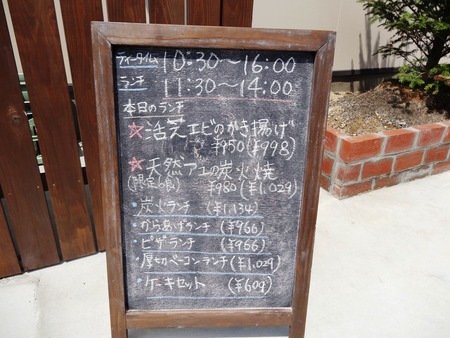 ティータイム 10:30〜16:00
ランチ 11:30〜14:00
本日のランチ
☆活芝エビのかき揚げ
¥950(¥998)
☆天然アユの炭火焼
(限定6食) ¥980(¥1,029)
・炭火ランチ (¥1,134)
・からあげランチ (¥966)
・ピザランチ (¥966)
・厚切ベーコンランチ(¥1,029)
・ケーキセット (¥609)